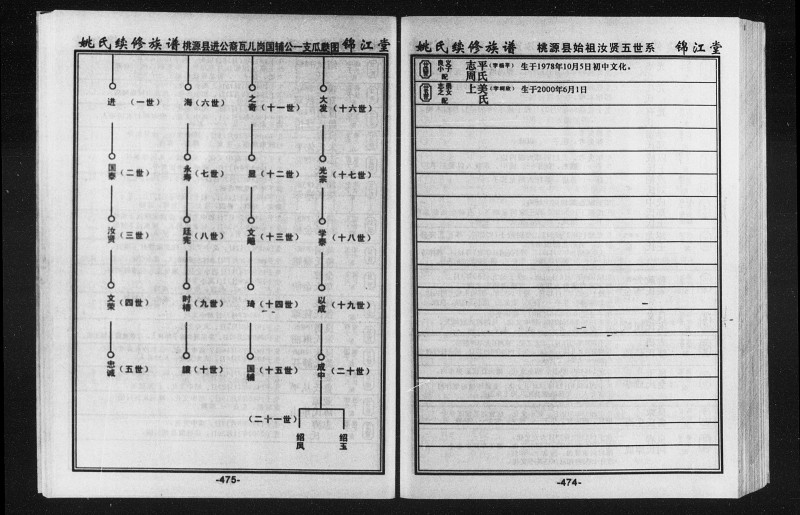 姚氏续修族谱 桃源县进公裔瓦儿岗国辅公一支瓜瓞图 锦江堂
进 (一世)
国泰 (二世)
汝贤 (三世)
文荣 (四世)
忠诚 (五世)
海 (六世)
永寿 (七世)
廷宪 (八世)
时榜 (九世)
(十世)
之奇 (十一世)
(十二世)
文 (十三世)
琦 (十四世)
国辅 (十五世)
大发 (十六世)
光宗 (十七世)
学泰 (十八世)
以成 (十九世)
成中 (二十世)
(二十一世)
绍凤
绍玉
-475-
姚氏续修族谱 桃源县始祖汝贤五世系 锦江堂
良义小子 志平 生于1978年10月5日初中文化。
配 周氏
之女 上美 生于2000年6月1日
配 氏
-474-